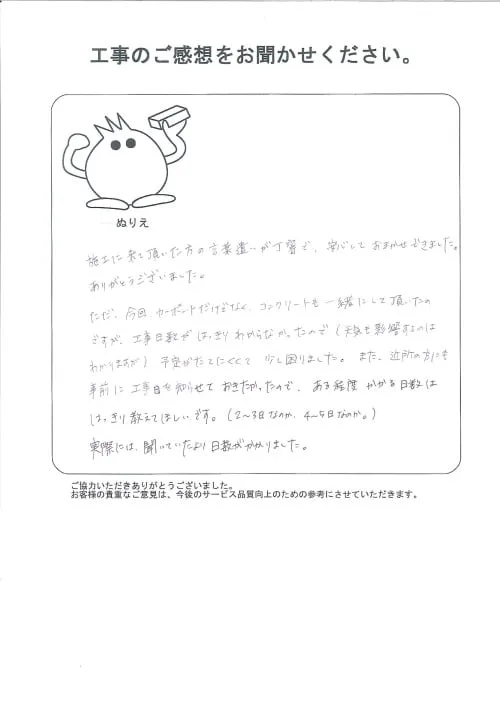 工事のご感想をお聞かせください。
ぬりえ
施工に来て頂いた方の言葉遣いが丁寧で、安心しておまかせできました。
ありがとうございました。
ただ、今回、カーポートだけでなく、コンクリートも一緒にして頂いたの
ですが、工事日数がはっきりわからなかったので(天気も影響するのは
わかりますが)予定がたてにくくて少し困りました。また、近所の方にも
事前に工事日を知らせておきたかったので、ある程度かかる日数は
はっきり教えてほしいです。(2〜3日なのか、4〜5日なのか。)
実際には、聞いていたより日数がかかりました。
ご協力いただきありがとうございました。
お客様の貴重なご意見は、今後のサービス品質向上のための参考にさせていただきます。